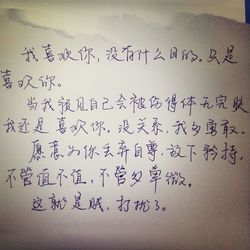 我喜欢你，没有什么目的。只是
喜欢你。
当我预见自己会被伤得体无完肤
我还是喜欢你。没关系，我多勇敢。
愿意为你丢弃自尊，放下矜持，
不管值不值，不管多卑微。
这就是贱，打扰了。